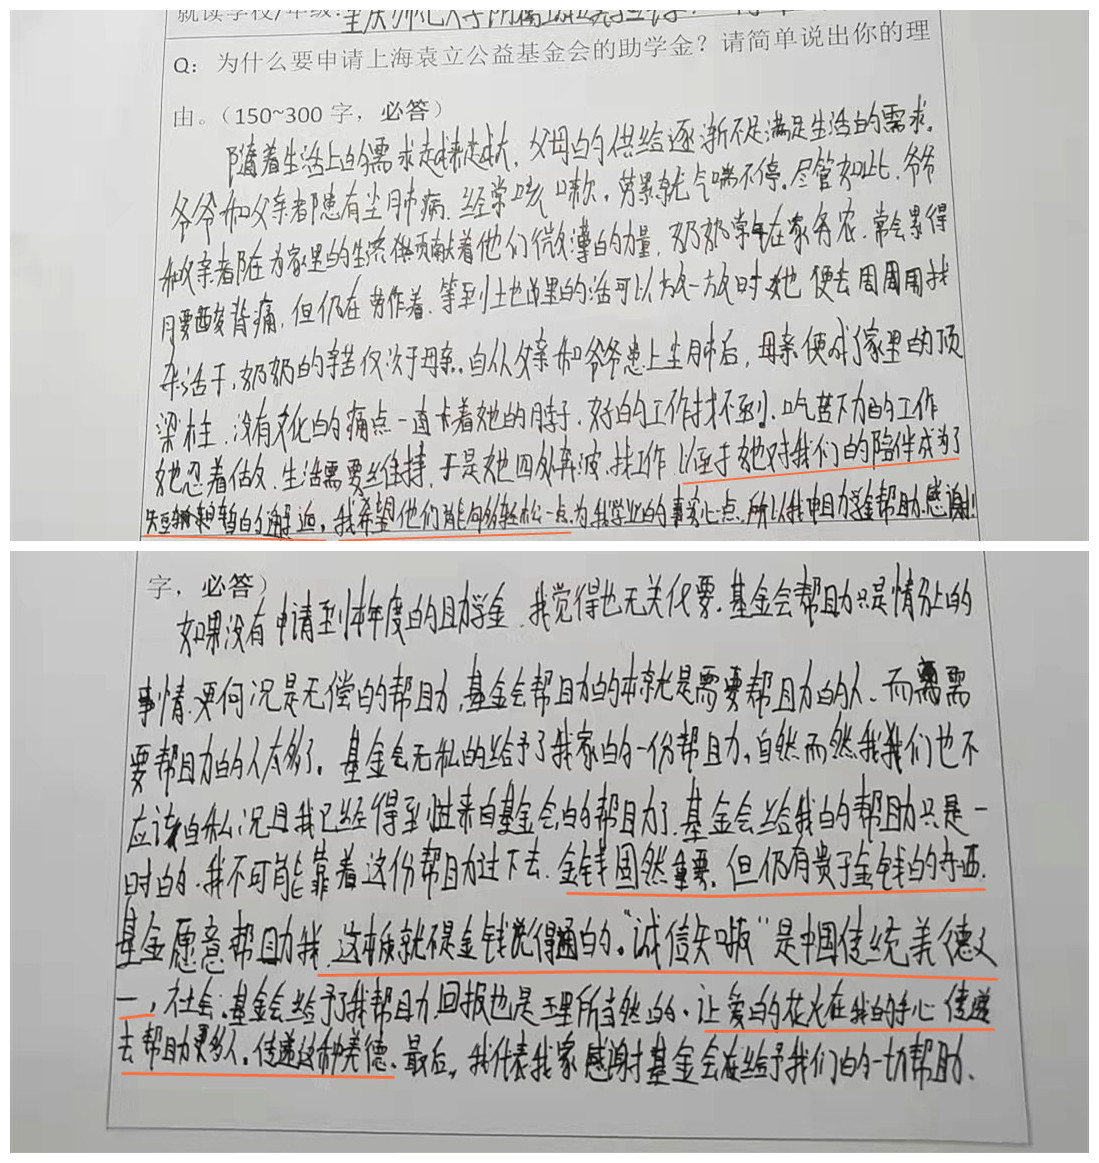 就读学校/年级:重庆师范大学附属
Q：为什么要申请上海袁立公益基金会的助学金？请简单说出你的理
由。（150~300 字，必答）
随着生活上的需求越来越大，父母的供给逐渐不足满足生活的需求。
爷爷和父亲都患有尘肺病，经常咳嗽，劳累就气喘不停。尽管如此，爷爷
和父亲都在为家里的生活贡献着他们微薄的力量，奶奶常年在家务农，常会累得
腰酸背痛，但仍在劳作着，等到土地里的活可以放一放时，她便去周围找
杂活干，奶奶的辛苦仅次于母亲。自从父亲和爷爷患上尘肺后，母亲便成了家里的顶
梁柱，没有文化的痛点一直卡着她的脖子，好的工作找不到，吃苦下力的工作
她忍着做，生活需要维持，于是她四处奔波，找工作，以至于她对我们的陪伴成为了
短暂的邂逅，我希望他们能够轻松一点，为我学业的事实心点，所以我申助学金帮助。感谢！
字，必答）
如果没有申请到本年度的助学金，我觉得也无关化要，基金会帮助只是情分上的
事情，更何况是无偿的帮助，基金会帮助的本就是需要帮助的人，而需
要帮助的人太多了。基金会无私的给予了我家的一份帮助，自然而然我我们也不
应该自私，况且我已经得到过来自基金会的帮助了，基金会给我的帮助只是一
时的，我不可能靠着这份帮助过下去，金钱固然重要，但仍有贵于金钱的东西，
基金愿意帮助我，这本质就不是金钱说得通的。“诚信知报”是中国传统美德之
一，社会、基金会给予了我帮助，回报也是理所当然的，让爱的花火在我的手心传递
去帮助更多人，传递这种美德。最后，我代表我家感谢基金会在给予我们的一切帮助。